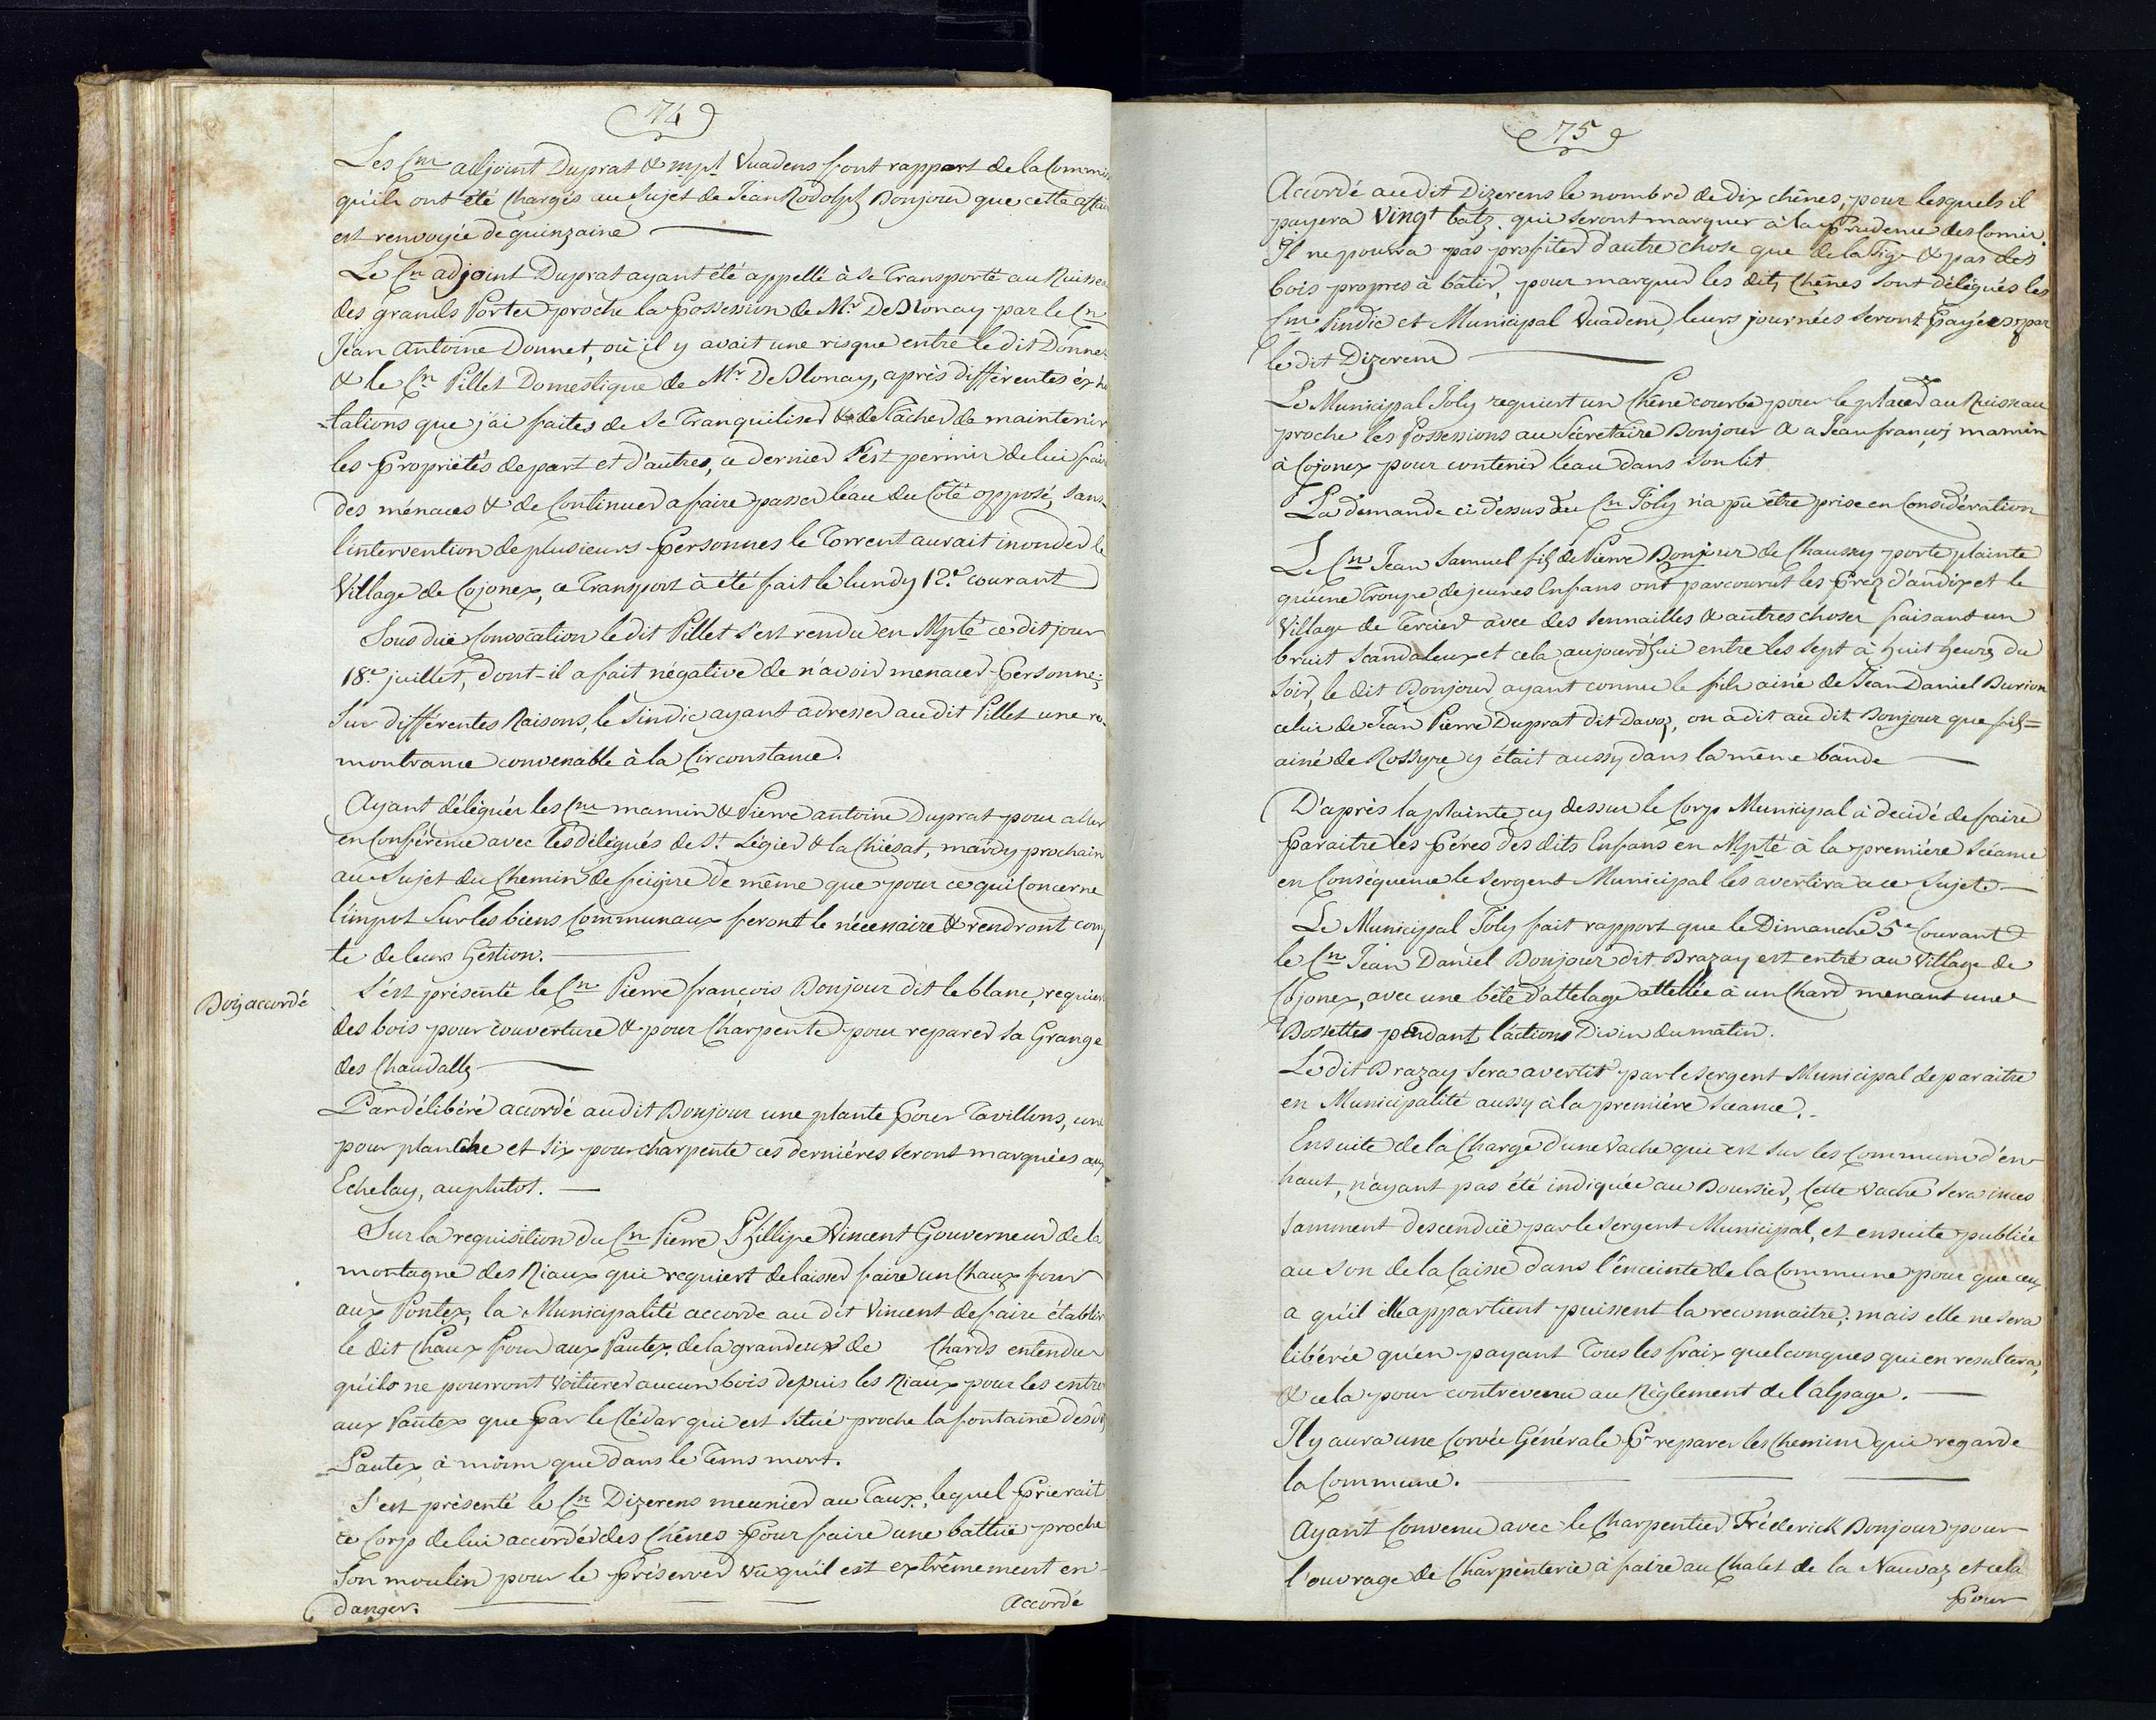 74
Les Cns adjoint Duprat & mpl Vuadens font rapport de la Commis
qu'ils ont été Chargés au Sujet de Jean Rodolph Bonjour que cette affair
est renvoyée de quinzaine
Le Cn adjoint Duprat ayant été appellé à se Transporté au Ruissea
des grands Portes proche la possession de Mr DeBlonay par le Cn
Jean Antoine Donnet, où il y avait une risque entre le dit Donne
& le Cn Pillet Domestique de Mr DeBlonay, après différentes éxho
-tations que j'ai faites de se Tranquiliser & de Tâcher de maintenir
les propriétés de part et d'autres, ce dernier s'est permis de lui fair
des ménaces & de Continuer a faire passer l'eau du Côté opposé, sans
l'intervention de plusieurs personnes le Torrent aurait inonder le
Village de Cojonex, ce Transport à été fait le lundy 12e courant
Sous duë Convocation le dit Pillet s'est rendu en Mpté ce dit jour
18e juillet, dont-il a fait négative de n'avoir menacer personne;
Sur différentes Raisons, le Sindic ayant adresser au dit Pillet une re-
montrance convenable à la Circonstance.
Ayant déléguér les Cns mamin & Pierre antoine Duprat pour aller
en Conférence avec les délégués de St Légier & la Chiésat, mardy prochain
au Sujet du Chemin de feigire de même que pour ce qui Concerne
l'impot Sur les biens Communaux feront le nécessaire & rendront com
te de leurs Géstion.
Bois accordé
S'est présenté le Cn Pierre françois Bonjour dit le blanc, requier
des bois pour couverture & pour Charpente pour reparer sa Grange
des Chaudalles
Par délibéré accordé au dit Bonjour une plante pour Tavillons, une
pour planche et six pour charpente ces derniéres seront marquées au
Echelay, au plutot.
Sur la requisition du Cn Pierre Phillipe Vincent Gouverneur de la
montagne des Riaux qui requiert de laisser faire un Chaux four
aux Pontex, la Municipalité accorde au dit Vincent de faire établir
le dit Chaux four aux Pautex, de la grandeur de Chards entendu
qu'ils ne pourront voiturer aucun bois depuis les Riaux pour les entre
aux Pautex que par le Clédar qui est situé proche la fontaine des
Pautex, à moins que dans le Tems mort.
S'est présenté le Cn Dizerens meunier au Taux, lequel prierait
ce Corp de lui accorder des Chênes pour faire une battuë proche
son moulin pour le préserver vu qu'il est extrêmement en
danger.
Accordé
75
Accordé au dit Dizerens le nombre de dix chênes, pour lesquels il
payera Vingt batz. qui seront marquer à la prudence des Comis.
Il ne pourra pas profiter d'autre chose que de la Tige & pas des
bois propres à bâtir, pour marquer les dits Chênes sont délégués les
Cns Sindic et Municipal Vuadens, leurs journées seront payées par
le dit Dizerens
Le Municipal Joly requiert un Chêne courbe pour le placer au Ruisseau
proche les Possessions au Sécretaire Bonjour & a Jean françois mamin
à Cojonex pour contenir l'eau dans son lit
La demande ci dessus du Cn Joly n'a pu être prise en Considération
Le Cn Jean Samuel fils de Pierre Bonjour de Chaussy porte plainte
qu'une Troupe de jeunes Enfans ont parcourut les prez d'andix et le
Village de Tercier avec des sennailles & autres choses faisant un
bruit scandaleux et cela aujourd'hui entre les sept à huit heures du
soir, le dit Bonjour ayant connu le fils ainé de Jean Daniel Burion
celui de Jean Pierre Duprat dit Davoz, on a dit au dit Bonjour que fils=
ainé de Rossyre y était aussy dans la même bande
D'après la plainte cy dessus le Corp Municipal à decidé de faire
paraitre les péres des dits Enfans en Mpté à la premiére Séeance
en Conséquence le Sergent Municipal les avertira a ce Sujet.
Le Municipal Joly fait rapport que le Dimanche 5e Courant
le Cn Jean Daniel Bonjour dit Brazay est entré au Village de
Cojonex, avec une bête d'attelage attellée à un Chard menant une
Bossettes pendant l'actions Divin du matin.
Le dit Brazay sera avertit par le Sergent Municipal de paraitre
en Municipalité aussy à la premiére Sceance.
Ensuite de la Charge d'une Vache qui est sur les Commune d'en
haut, n'ayant pas été indiquée au Boursier, Cette vache sera inces
samment descenduë par le Sergent Municipal, et ensuite publiée
au son de la Caisse dans l'énceinte de la Commune pour que ceux
a qu'il elle appartient puissent la reconnaitre; mais elle ne sera
libérée qu'en payant Tous les fraix quelconques qui en resultera,
& cela pour contrevenu au Règlement de l'alpage.
Il y aura une Corvée Générale pr reparer les Chemins qui regarde
la Commune.
Ayant Convenu avec le Charpentier Fréderick Bonjour pour
l'ouvrage de Charpenterie à faire au Chalet de la Nauvaz et cela
pour